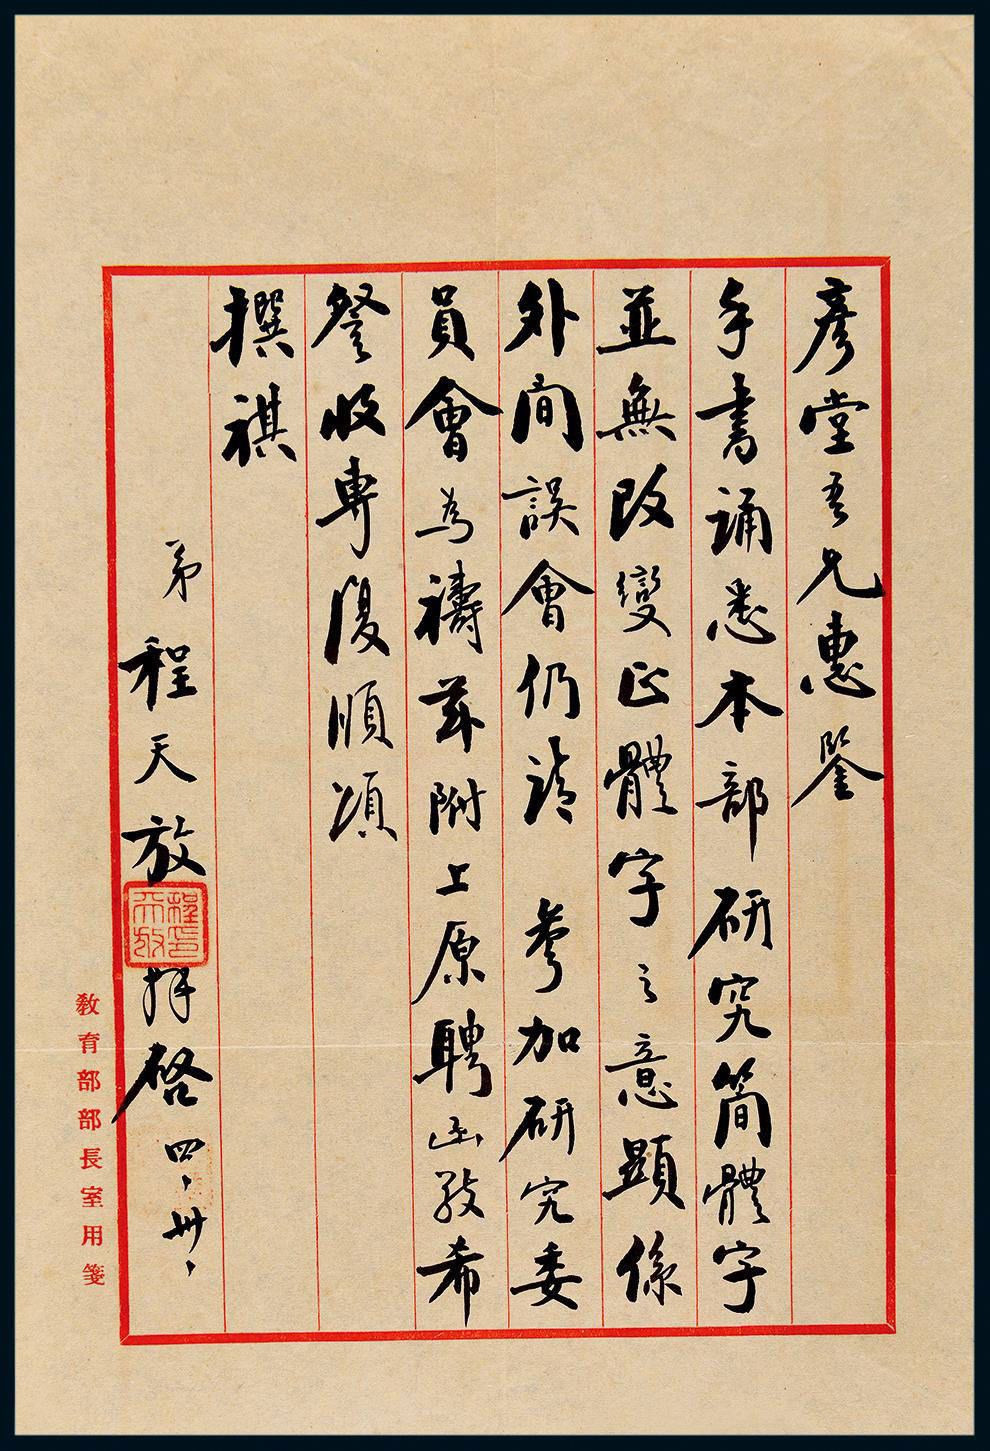 彥堂吾兄惠鑒
手書誦悉本部研究簡體字
並無改變正體字之意顯係
外間誤會仍請 參加研究委
員會為禱茲附上原聘函敬希
詧收專復順頌
撰祺
弟程天放拜啓 四、卅、
程天放印
教育部部長室用箋